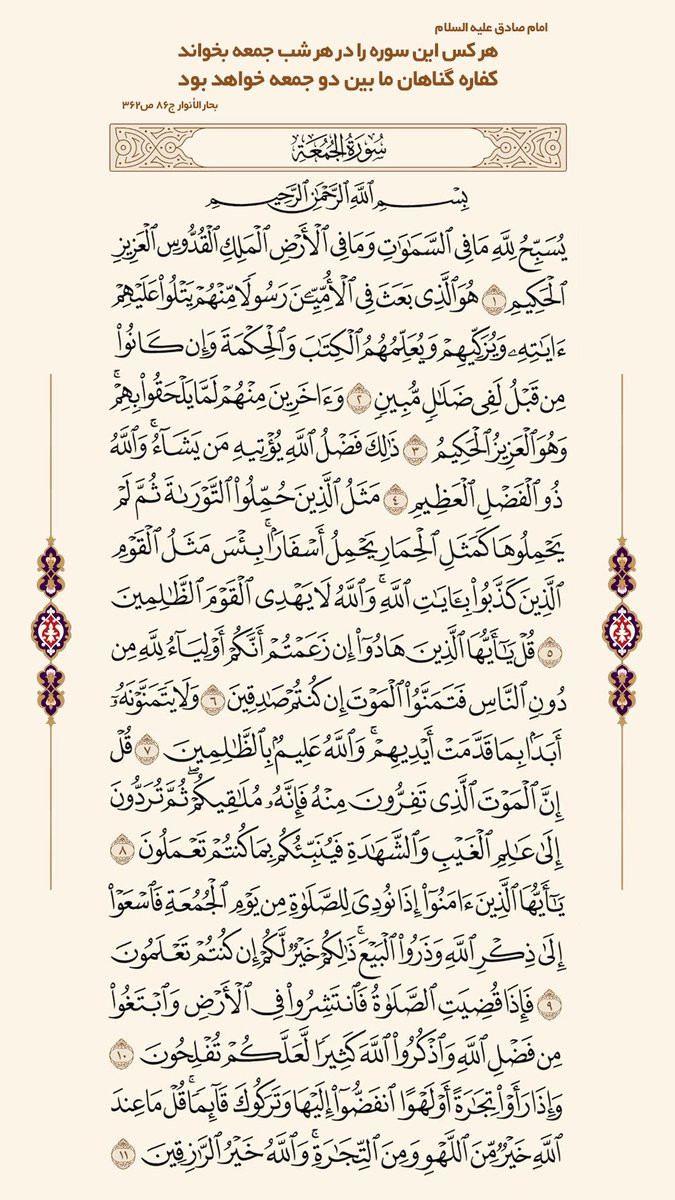 امام صادق علیه السلام
هر کس این سوره را در هر شب جمعه بخواند
کفاره گناهان ما بین دو جمعه خواهد بود
بحار الأنوار ج۸۶ ص۳۶۲
سُورَةُ الجُمُعَةِ
بِسْمِ ٱللَّهِ ٱلرَّحْمَٰنِ ٱلرَّحِيمِ
يُسَبِّحُ لِلَّهِ مَا فِي ٱلسَّمَٰوَٰتِ وَمَا فِي ٱلْأَرْضِ ٱلْمَلِكِ ٱلْقُدُّوسِ ٱلْعَزِيزِ
ٱلْحَكِيمِ ١ هُوَ ٱلَّذِي بَعَثَ فِي ٱلْأُمِّيِّـۧنَ رَسُولًا مِّنْهُمْ يَتْلُوا۟ عَلَيْهِمْ
ءَايَٰتِهِۦ وَيُزَكِّيهِمْ وَيُعَلِّمُهُمُ ٱلْكِتَٰبَ وَٱلْحِكْمَةَ وَإِن كَانُوا۟
مِن قَبْلُ لَفِي ضَلَٰلٍ مُّبِينٍ ٢ وَءَاخَرِينَ مِنْهُمْ لَمَّا يَلْحَقُوا۟ بِهِمْۚ
وَهُوَ ٱلْعَزِيزُ ٱلْحَكِيمُ ٣ ذَٰلِكَ فَضْلُ ٱللَّهِ يُؤْتِيهِ مَن يَشَآءُۚ وَٱللَّهُ
ذُو ٱلْفَضْلِ ٱلْعَظِيمِ ٤ مَثَلُ ٱلَّذِينَ حُمِّلُوا۟ ٱلتَّوْرَىٰةَ ثُمَّ لَمْ
يَحْمِلُوهَا كَمَثَلِ ٱلْحِمَارِ يَحْمِلُ أَسْفَارًۢاۚ بِئْسَ مَثَلُ ٱلْقَوْمِ
ٱلَّذِينَ كَذَّبُوا۟ بِـَٔايَٰتِ ٱللَّهِۚ وَٱللَّهُ لَا يَهْدِي ٱلْقَوْمَ ٱلظَّٰلِمِينَ
٥ قُلْ يَٰٓأَيُّهَا ٱلَّذِينَ هَادُوٓا۟ إِن زَعَمْتُمْ أَنَّكُمْ أَوْلِيَآءُ لِلَّهِ مِن
دُونِ ٱلنَّاسِ فَتَمَنَّوُا۟ ٱلْمَوْتَ إِن كُنتُمْ صَٰدِقِينَ ٦ وَلَا يَتَمَنَّوْنَهُۥٓ
أَبَدًۢا بِمَا قَدَّمَتْ أَيْدِيهِمْۚ وَٱللَّهُ عَلِيمٌۢ بِٱلظَّٰلِمِينَ ٧ قُلْ
إِنَّ ٱلْمَوْتَ ٱلَّذِي تَفِرُّونَ مِنْهُ فَإِنَّهُۥ مُلَٰقِيكُمْۖ ثُمَّ تُرَدُّونَ
إِلَىٰ عَٰلِمِ ٱلْغَيْبِ وَٱلشَّهَٰدَةِ فَيُنَبِّئُكُم بِمَا كُنتُمْ تَعْمَلُونَ ٨
يَٰٓأَيُّهَا ٱلَّذِينَ ءَامَنُوٓا۟ إِذَا نُودِيَ لِلصَّلَوٰةِ مِن يَوْمِ ٱلْجُمُعَةِ فَٱسْعَوْا۟
إِلَىٰ ذِكْرِ ٱللَّهِ وَذَرُوا۟ ٱلْبَيْعَۚ ذَٰلِكُمْ خَيْرٌ لَّكُمْ إِن كُنتُمْ تَعْلَمُونَ
٩ فَإِذَا قُضِيَتِ ٱلصَّلَوٰةُ فَٱنتَشِرُوا۟ فِي ٱلْأَرْضِ وَٱبْتَغُوا۟
مِن فَضْلِ ٱللَّهِ وَٱذْكُرُوا۟ ٱللَّهَ كَثِيرًا لَّعَلَّكُمْ تُفْلِحُونَ ١٠
وَإِذَا رَأَوْا۟ تِجَٰرَةً أَوْ لَهْوًا ٱنفَضُّوٓا۟ إِلَيْهَا وَتَرَكُوكَ قَآئِمًاۚ قُلْ مَا عِندَ
ٱللَّهِ خَيْرٌ مِّنَ ٱللَّهْوِ وَمِنَ ٱلتِّجَٰرَةِۚ وَٱللَّهُ خَيْرُ ٱلرَّٰزِقِينَ ١١